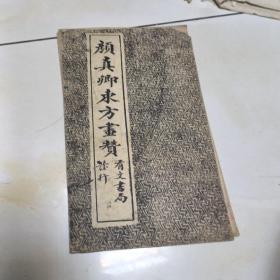 顏真卿東方畫贊
有文書局
發行